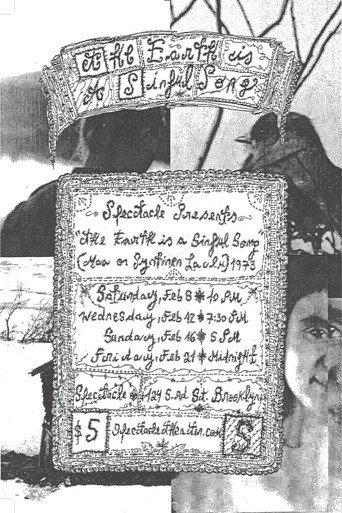 The Earth is
A Sinful Song
Spectacle Presents
"The Earth is a Sinful Song"
(Maa on Syntinen Laulu) 1973
Saturday, Feb 8 * 10 PM
Wednesday, Feb 12 * 7:30 PM
Sunday, Feb 16 * 5 PM
Friday, Feb 21 * Midnight
Spectacle * 124 S. 3rd St. Brooklyn
$5 Spectacletheater.com S